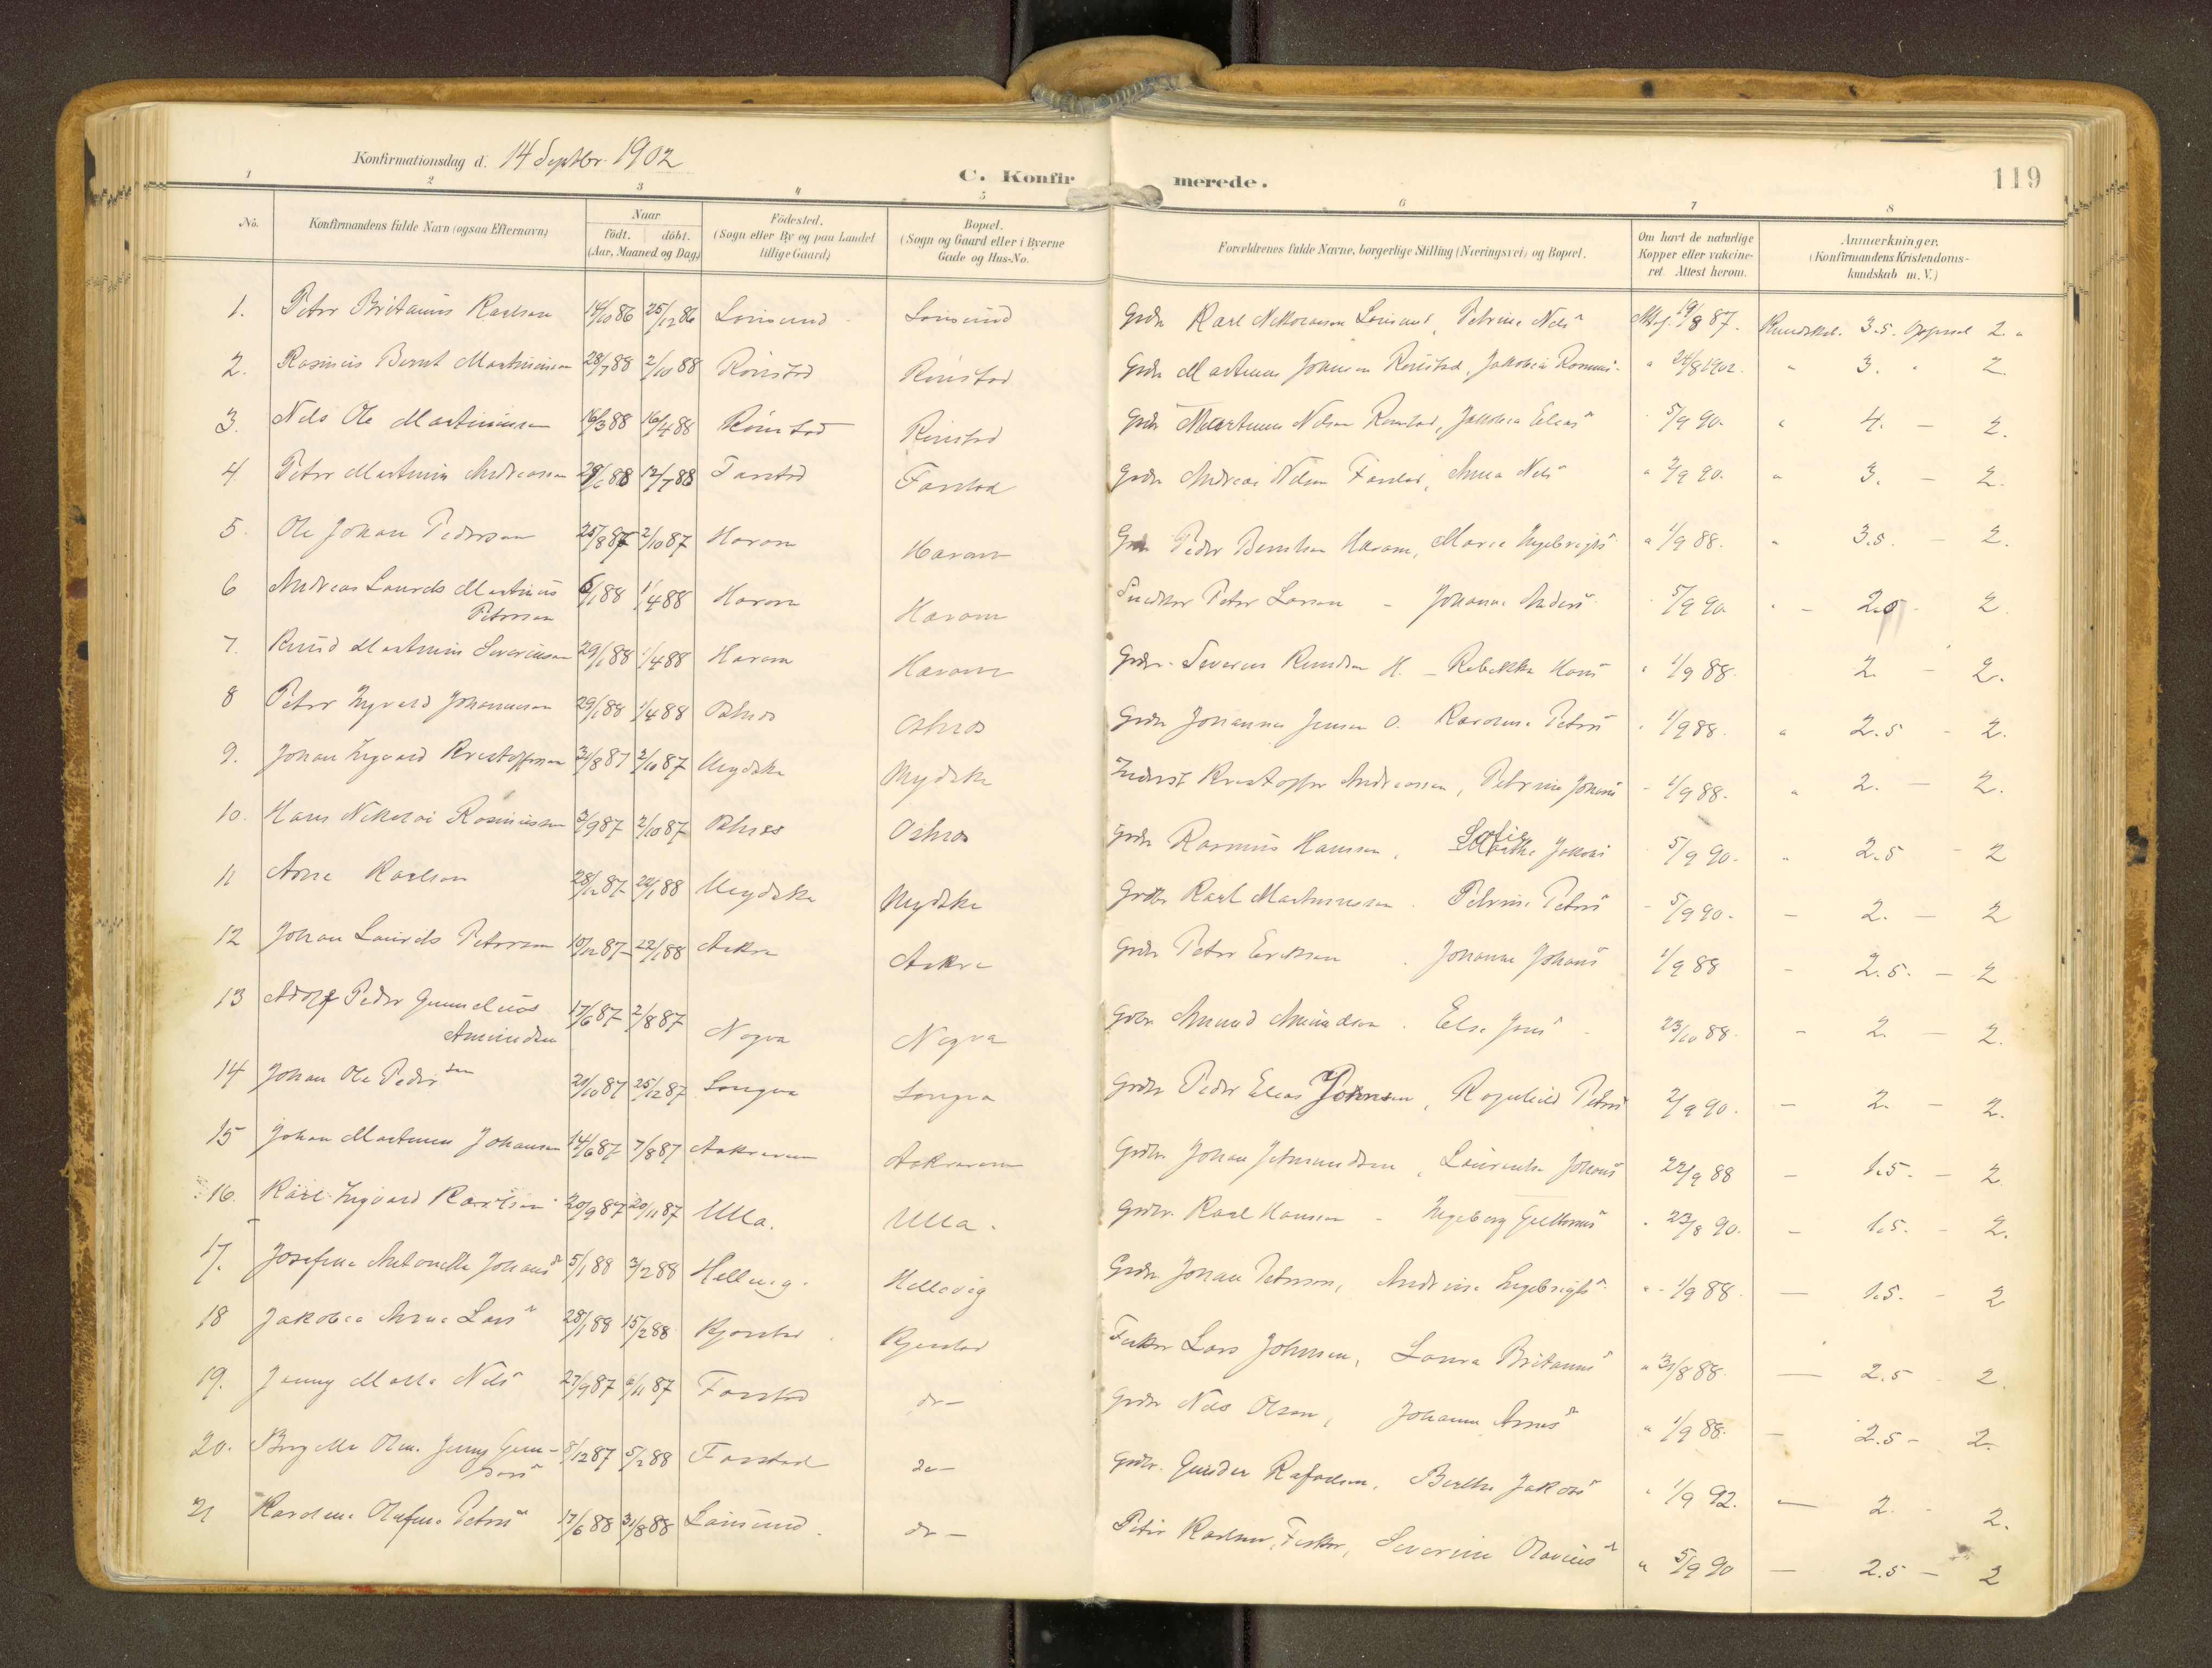 Konfirmationsdag d. 14 Septbr. 1902
C. Konfirmerede.
119
1 2 3 4 5 6 7 8
No. Konfirmandens fulde Navn (ogsaa Efternavn) Naar födt. döbt. (Aar, Maaned og Dag) Födested. (Sogn eller By og paa Landet tillige Gaard) Bopæl. (Sogn og Gaard eller i Byerne Gade og Hus-No. Forældrenes fulde Navne, borgerlige Stilling (Næringsvei) og Bopæl. Om havt de naturlige Kopper eller vakcineret. Attest herom. Anmærkninger. (Konfirmandens Kristendomskundskab m. V.)
1. Peter Britanius Karlsen 25/12 86 Longvund Karl Nikolaisen Petrine Nels 19/8 87. Kundskab. 3.5. Opførsel 2.
2. Rasmus Bernt Martinusen 28/7 88 2/10 88 Rönstad Rönstad Grdbr Martinus Johnsen Rönstad, Jakobia Rasmus 24/8 1902. " 3. " 2.
3. Nels Ole Martinusen 16/3 88 16/4 88 Rönstad Rönstad Grdbr Martinus Nelsen Rönstad, Jakobia Elias 5/9 90. " 4. – 2.
4. Peter Martinus Andreassen 12/7 88 Farstad Farstad Grdbr Andreas Nelsen Farstad, Anna Nels " 2/9 90. " 3. – 2.
5. Ole Johan Pedersen 25/8 87 2/10 87 Haram Haram Peder Berntsen Haram, Marie Ingebrigts " 1/9 88. " 3.5. – 2.
6 Andreas Laurits Martinus Petersen 6/1 88 1/4 88 Haram Haram Peter Larsen – Johanna Anders 5/9 90. " – 2.5 – 2.
7. Knud Martinus Severinsen 29/1 88 1/4 88 Haram Haram Grdbr. Severin Knudsen H. – Rebekka Hans " 1/9 88. 2 – 2.
8 Peter Ingvald Johannesen 29/1 88 1/4 88 Oshnes Oshnes Grdbr Johannes Jensen O. Karoline Peters " 1/9 88. " 2.5 – 2.
9. Johan Ingvard Kristoffersen 31/8 87 2/10 87 Mydske Mydske Inderst Kristoffer Andreassen, Petrine Johans – 1/9 88. " 2. – 2.
10. Hans Nikolai Rasmussen 3/9 87 2/10 87 Oshnes Oshnes Grdbr Rasmus Hanssen, Sofie Jakobs 5/9 90. " 2.5 – 2
11 Arne Karlsen 28/12 87 22/1 88 Mydske Mydske Grdbr Karl Martinussen. Petrine Peters – 5/9 90. – 2. – 2
12 Johan Laurits Petersen 10/12 87 22/1 88 Aakre Aakre Grdbr Peter Eriksen. Johanna Johans 1/9 88 – 2.5. – 2
13 Adolf Peder Amundsen 17/6 87 2/8 87 Nogva Nogva Gdbr Amund Amundsen. Else Jens – 23/10 88. – 2. – 2.
14 Johan Ole Pedersen 20/10 87 25/12 87 Longva Longva Grdbr Peder Elias Johnsen, Ragnhild Peters 2/9 90. – 2. – 2.
15 Johan Martinus Johansen 14/6 87 7/8 87 Aakrevem Aakrevem Grdbr Johan Jetmundsen, Laurentse Johans 22/9 88 – 1.5. – 2.
16. Karl Ingvard Karlsen 20/9 87 20/11 87 Ulla. Ulla. Grdbr. Karl Hansen – Ingeborg " 23/8 90. – 1.5. – 2.
17. Josefine Antonette Johansd 5/1 88 3/2 88 Hellevig. Hellevig Grdbr Johan Petersen, Andrine Ingebrigts " – 1/9 88. – 1.5. – 2
18 Jakobia Anna Lars 28/1 88 15/2 88 Kjerstad. Kjerstad Fisker Lars Johnsen, Laura Britanus " 31/8 88. – 2.5 – 2.
19. Jenny Matta Nels 27/9 87 6/11 87 Farstad do – Grdbr Nels Olsen, Johanna Arnes " 1/9 88. – 2.5 – 2.
20. 8/12 87 5/2 88 Farstad do – Grdbr. Gunder Rafaelsen, Berthe Jakobs " 1/9 92. – 2. – 2.
21 Karoline Olefine Peters 17/6 88 31/8 88 do – Peter Karlsen, Fisker, Severine Olavius " 5/9 90 – 2.5 – 2